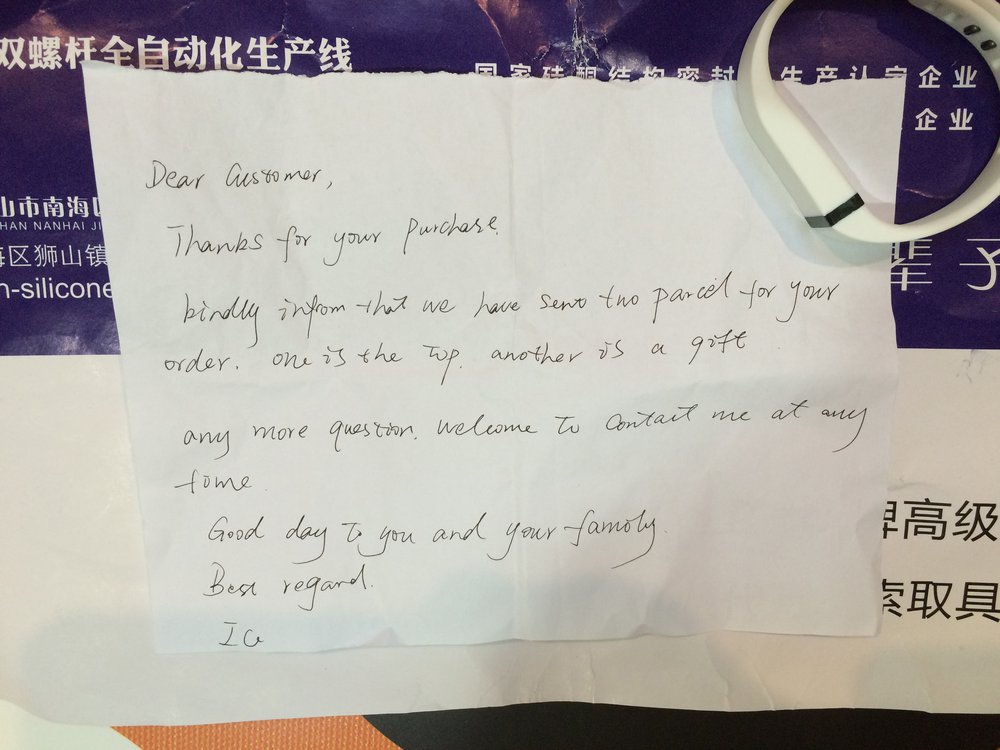 双螺杆全自动化生产线
国家硅酮结构密封 生产认定企业
企业
山市南海区
HAN NANHAI JI
海区狮山镇
n-silicone
辈子
Dear Customer,
Thanks for your purchase.
kindly infrom that we have sent two parcel for your
order. one is the top. another is a gift.
any more question. welcome to contact me at any
time.
Good day to you and your family.
Best regard.
牌高级
索取具